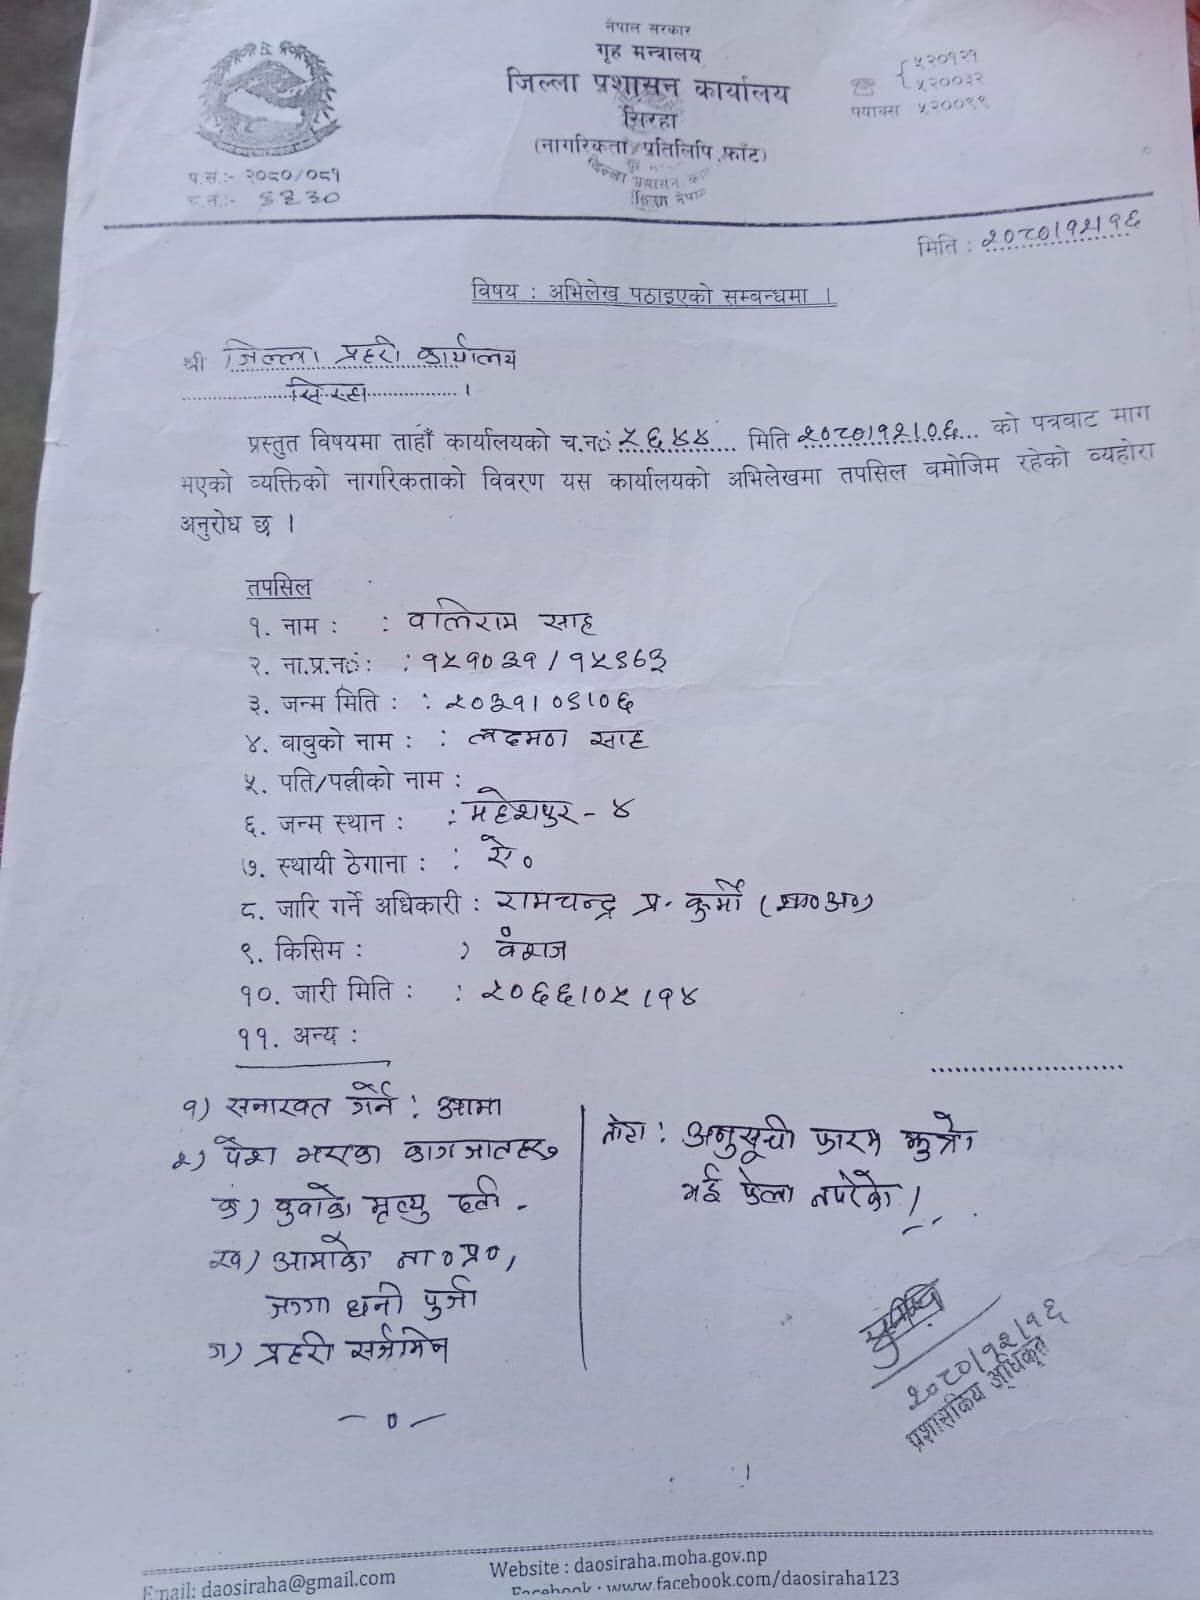 नेपाल सरकार
गृह मन्त्रालय
जिल्ला प्रशासन कार्यालय
सिरहा
(नागरिकता/प्रतिलिपि फाँट)
५२०१२१
५२००३२
फ्याक्स ५२००९९
प.सं.:- २०८०/०८१
च.नं.:- ६३३०
मिति : २०८०।१२।१६
विषय : अभिलेख पठाइएको सम्बन्धमा ।
श्री जिल्ला प्रहरी कार्यालय
सिरहा ।
प्रस्तुत विषयमा ताहाँ कार्यालयको च.नं ५६४४ मिति २०८०।१२।०६ को पत्रबाट माग
भएको व्यक्तिको नागरिकताको विवरण यस कार्यालयको अभिलेखमा तपसिल बमोजिम रहेको व्यहोरा
अनुरोध छ ।
तपसिल
१. नाम : : वालिराम साह
२. ना.प्र.नं: : १५१०३१/१५९६३
३. जन्म मिति : : २०३१।०९।०६
४. बाबुको नाम : : साह
५. पति/पत्नीको नाम :
६. जन्म स्थान : : महेशपुर - ४
७. स्थायी ठेगाना : : ऐ०
८. जारि गर्ने अधिकारी : रामचन्द्र प्र. कुर्मी
९. किसिम : वंशज
१०. जारी मिति : : २०६६।०५।१४
११. अन्य :
१) सनाखत गर्ने : आमा
२) पेश भएका कागजातहरु
क) बुवाको मृत्यु दर्ता -
ख) आमाको ना०प्र०,
जग्गा धनी पुर्जा
ग) प्रहरी सर्जमिन
- ० -
नोट : अनुसूची फारम धुत्रो
भई फेला नपरेको ।
२०८०/१२/१६
प्रशासकिय अधिकृत
Email: daosiraha@gmail.com
Website : daosiraha.moha.gov.np
Facebook : www.facebook.com/daosiraha123